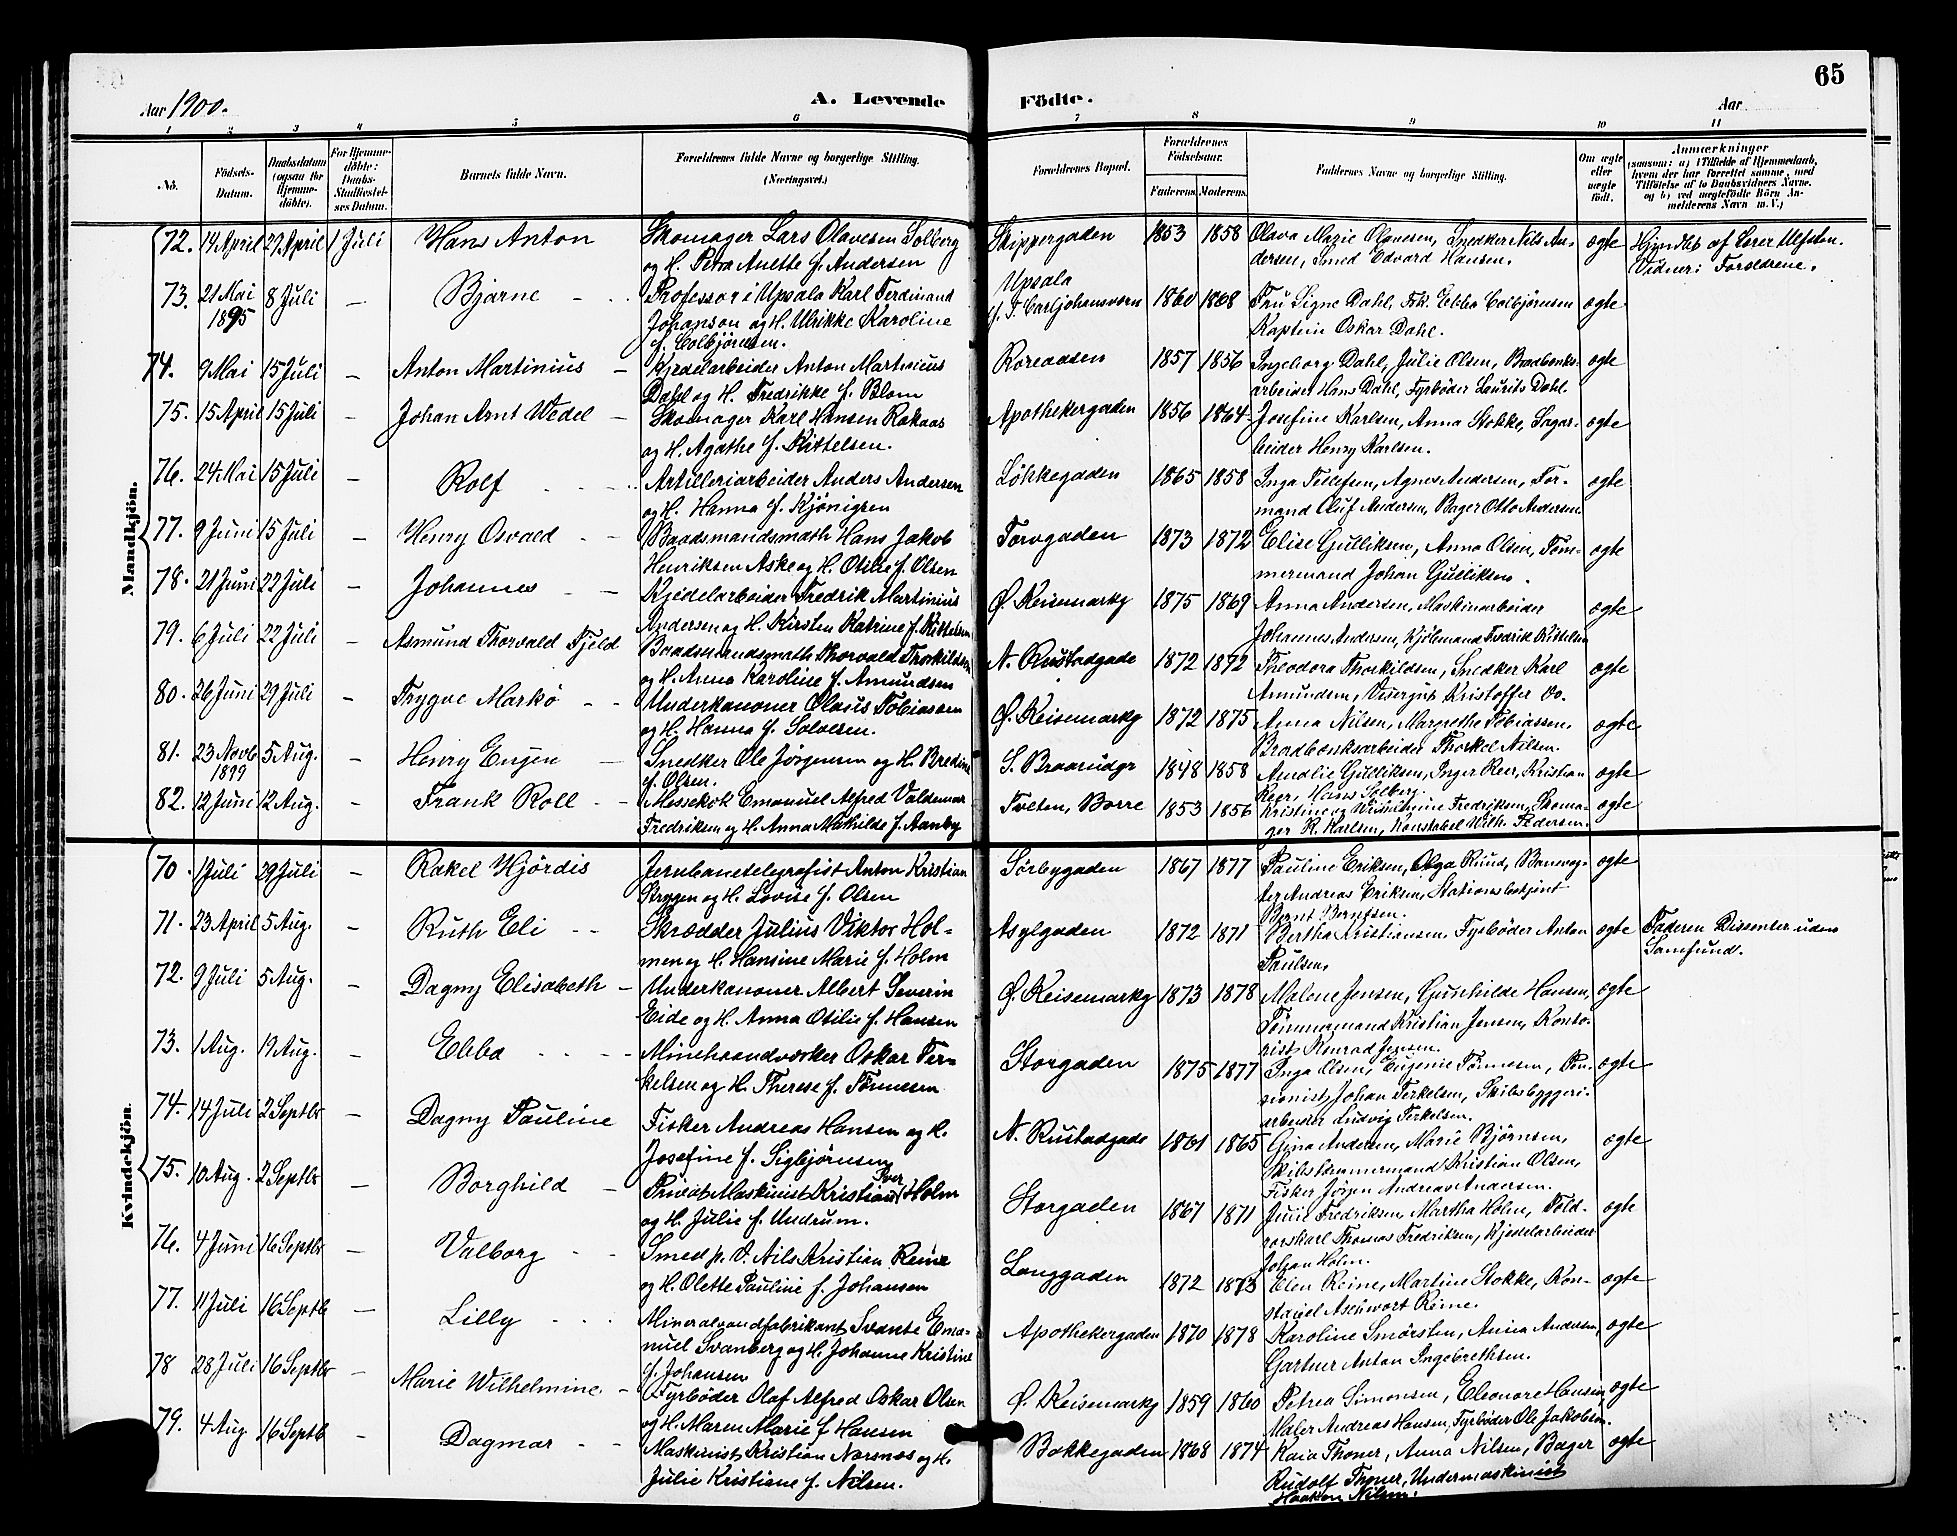 65
Aar 1900.
A. Levende Födte.
Aar
1 2 3 4 5 6 7 8 9 10 11
No. Födsels-Datum. Daabsdatum (ogsaa for Hjemme-döbte). For Hjemme-döbte: Daabs-Stadfæstel-ses Datum. Barnets fulde Navn. Forældrenes fulde Navne og borgerlige Stilling. (Næringsvei.) Forældrenes Bopæl. Forældrenes Födselsaar. Faderens. Moderens. Faddernes Navne og borgerlige Stilling. Om ægte eller uægte födt. Anmærkninger (saasom: a) i Tilfælde af Hjemmedaab, hvem der har forrettet samme, med Tilföielse af to Daabsvidners Navne, og b) ved uægtefödte Börn An-melderens Navn m. V.)
Mandkjön.
72. 14 April 27 April 1 Juli Hans Anton Skomager Lars Olavesen Solberg Skippergaden 1853 1858 Olava Marie Olavesen, Snedker Nils An- ægte Hjmdbt af Lærer Ulfsten.
og H. Petra Anette f. Andersen dersen, Smed Edvard Hansen. Vidner: Forældrene.
73. 21 Mai 8 Juli — Bjarne Professor i Upsala Karl Ferdinand Upsala 1860 1868 Fru Signe Dahl, Frk. Ebba Colbjörnsen ægte
1895 Johanson og H. Ulrikke Karoline f. T. Carljohansværn Kaptein Oskar Dahl.
f. Colbjörnsen.
74. 9 Mai 15 Juli — Anton Martinius Kjedelarbeider Anton Martinius Røreaasen 1857 1856 Ingeborg Dahl, Julie Olsen, Bradbænks- ægte
Dahl og H. Fredrikke f. Blom arbeider Hans Dahl, Fyrböder Laurits Dahl.
75. 15 April 15 Juli — Johan Arnt Wedel Skomager Karl Hansen Rakaas Apothekergaden 1856 1864 Josefine Karlsen, Anna Stokke, Sagar- ægte
og H. Agathe f. Kittelsen. beider Henry Karlsen.
76. 24 Mai 15 Juli — Rolf Artilleriarbeider Anders Andersen Løkkegaden 1865 1858 Inga Tellefsen, Agnes Andersen, For- ægte
og H. Hanna f. Kjönigren mand Oluf Andersen, Bager Otto Andersen
77. 9 Juni 15 Juli — Henry Osvald Baadsmandsmath Hans Jakob Torvgaden 1873 1872 Elise Gulliksen, Anna Olsen, Tøm- ægte
Henriksen Aske og H. Otilie f. Olsen mermand Johan Gulliksen.
78. 21 Juni 22 Juli — Johannes Kjedelarbeider Fredrik Martinius Ø. Keisemarkg 1875 1869 Anna Andersen, Maskinarbeider ægte
Andersen og H. Kirsten Katrine f. Kittelsen Johannes Andersen, Kjöbmand Fredrik Kittelsen
79. 6 Juli 22 Juli — Asmund Thorvald Fjeld Baadsmandsmath Thorvald Thorkildsen N. Rustadgade 1872 1872 Theodora Thorkildsen, Snedker Karl ægte
og H. Anna Karoline f. Amundsen Amundsen, Visergut Kristoffer Do.
80. 26 Juni 29 Juli — Trygve Markø Underkanoner Olaus Tobiassen Ø. Keisemarkg 1872 1875 Anna Nilsen, Margrethe Tobiassen, ægte
og H. Hanna f. Solvesen. Bradbænksarbeider Thorkel Nilsen.
81. 23 Novb 5 Aug. — Henry Eugen Snedker Ole Jørgensen og H. Bredine S. Braarudgr 1848 1858 Amalie Gulliksen, Inger Reer, Kristian ægte
1899 f. Olsen. Reer, Hans Solberg.
82. 12 Juni 12 Aug. — Frank Roll Messekok Emanuel Alfred Valdemar Tveten, Borre 1853 1856 Kristine og Wilhelmine Fredriksen, Skoma- ægte
Fredriksen og H. Anna Mathilde f. Aanby ger R. Karlsen, Konstabel Wilh. Pedersen.
Kvindekjön.
70. 1 Juli 29 Juli — Rakel Hjördis Jernbanetelegrafist Anton Kristian Sörbygaden 1867 1877 Pauline Eriksen, Olga Ruud, Banevog- ægte
Bryggen og H. Lovise f. Olsen ter Andreas Eriksen, Stationsbetjent
Bernt Berntsen.
71. 23 April 5 Aug. — Ruth Eli Skrædder Julius Viktor Hol- Asylgaden 1872 1871 Bertha Kristiansen, Fyrböder Anton ægte Faderen Dissenter uden
men og H. Hansine Marie f. Holm Paulsen. Samfund.
72. 9 Juli 5 Aug. — Dagny Elisabeth Underkanoner Albert Severin Ø. Keisemarkg 1873 1878 Malene Jensen, Gunhilde Hansen, ægte
Eide og H. Anna Otilie f. Hansen Tömmermand Kristian Jensen, Konto-
rist Konrad Jensen.
73. 1 Aug. 19 Aug. — Ebba Minehaandværker Oskar Ter- Storgaden 1875 1877 Inga Olsen, Eugenie Tønnesen, Pen- ægte
kelsen og H. Therese f. Tønnesen sionist Johan Terkelsen, Skibsbyggeri-
arbeider Ludvig Terkelsen.
74. 14 Juli 2 Septbr — Dagny Pauline Fisker Andreas Hansen og H. N. Rustadgade 1861 1865 Gina Andersen, Marie Bjørnsen, ægte
Josefine f. Sigbjörnsen Skibstømmermand Kristian Olsen,
Fisker Jørgen Andreas Andersen.
75. 10 Aug. 2 Septbr — Borghild Privat Maskinist Kristian Iver Holm Storgaden 1867 1871 Julie Fredriksen, Martha Holm, Told- ægte
og H. Julie f. Undrum. rorskarl Thomas Fredriksen, Kjedelarbeider
Johan Holm.
76. 4 Juni 16 Septbr — Valborg Smed p. V. Nils Kristian Reine Langgaden 1872 1873 Elen Reine, Martine Stokke, Kon- ægte
og H. Olette Pauline f. Johansen stabel Aschvort Reine.
77. 11 Juli 16 Septb — Lilly Mineralvandfabrikant Svante Ema- Apothekergaden 1870 1878 Karoline Smörsten, Anna Andersen, ægte
nuel Svanberg og H. Johanne Kristine Gartner Anton Ingebrethsen.
f. Johansen
78 28 Juli 16 Septbr — Marie Wilhelmine Fyrböder Olaf Alfred Oskar Olsen Ø. Keisemarkg 1859 1860 Petrea Simonsen, Eleonore Hansen, ægte
og H. Maren Marie f Hansen Maler Andreas Hansen, Fyrböder Ole Jakobsen.
79. 4 Aug. 16 Septb — Dagmar Maskinist Kristian Norsnos og H. Bakkegaden 1868 1874 Kaia Thoner, Anna Nilsen, Bager ægte
Julie Kristiane f. Nilsen. Rudolf Thoner, Undermaskinist
Haakon Nilsen.